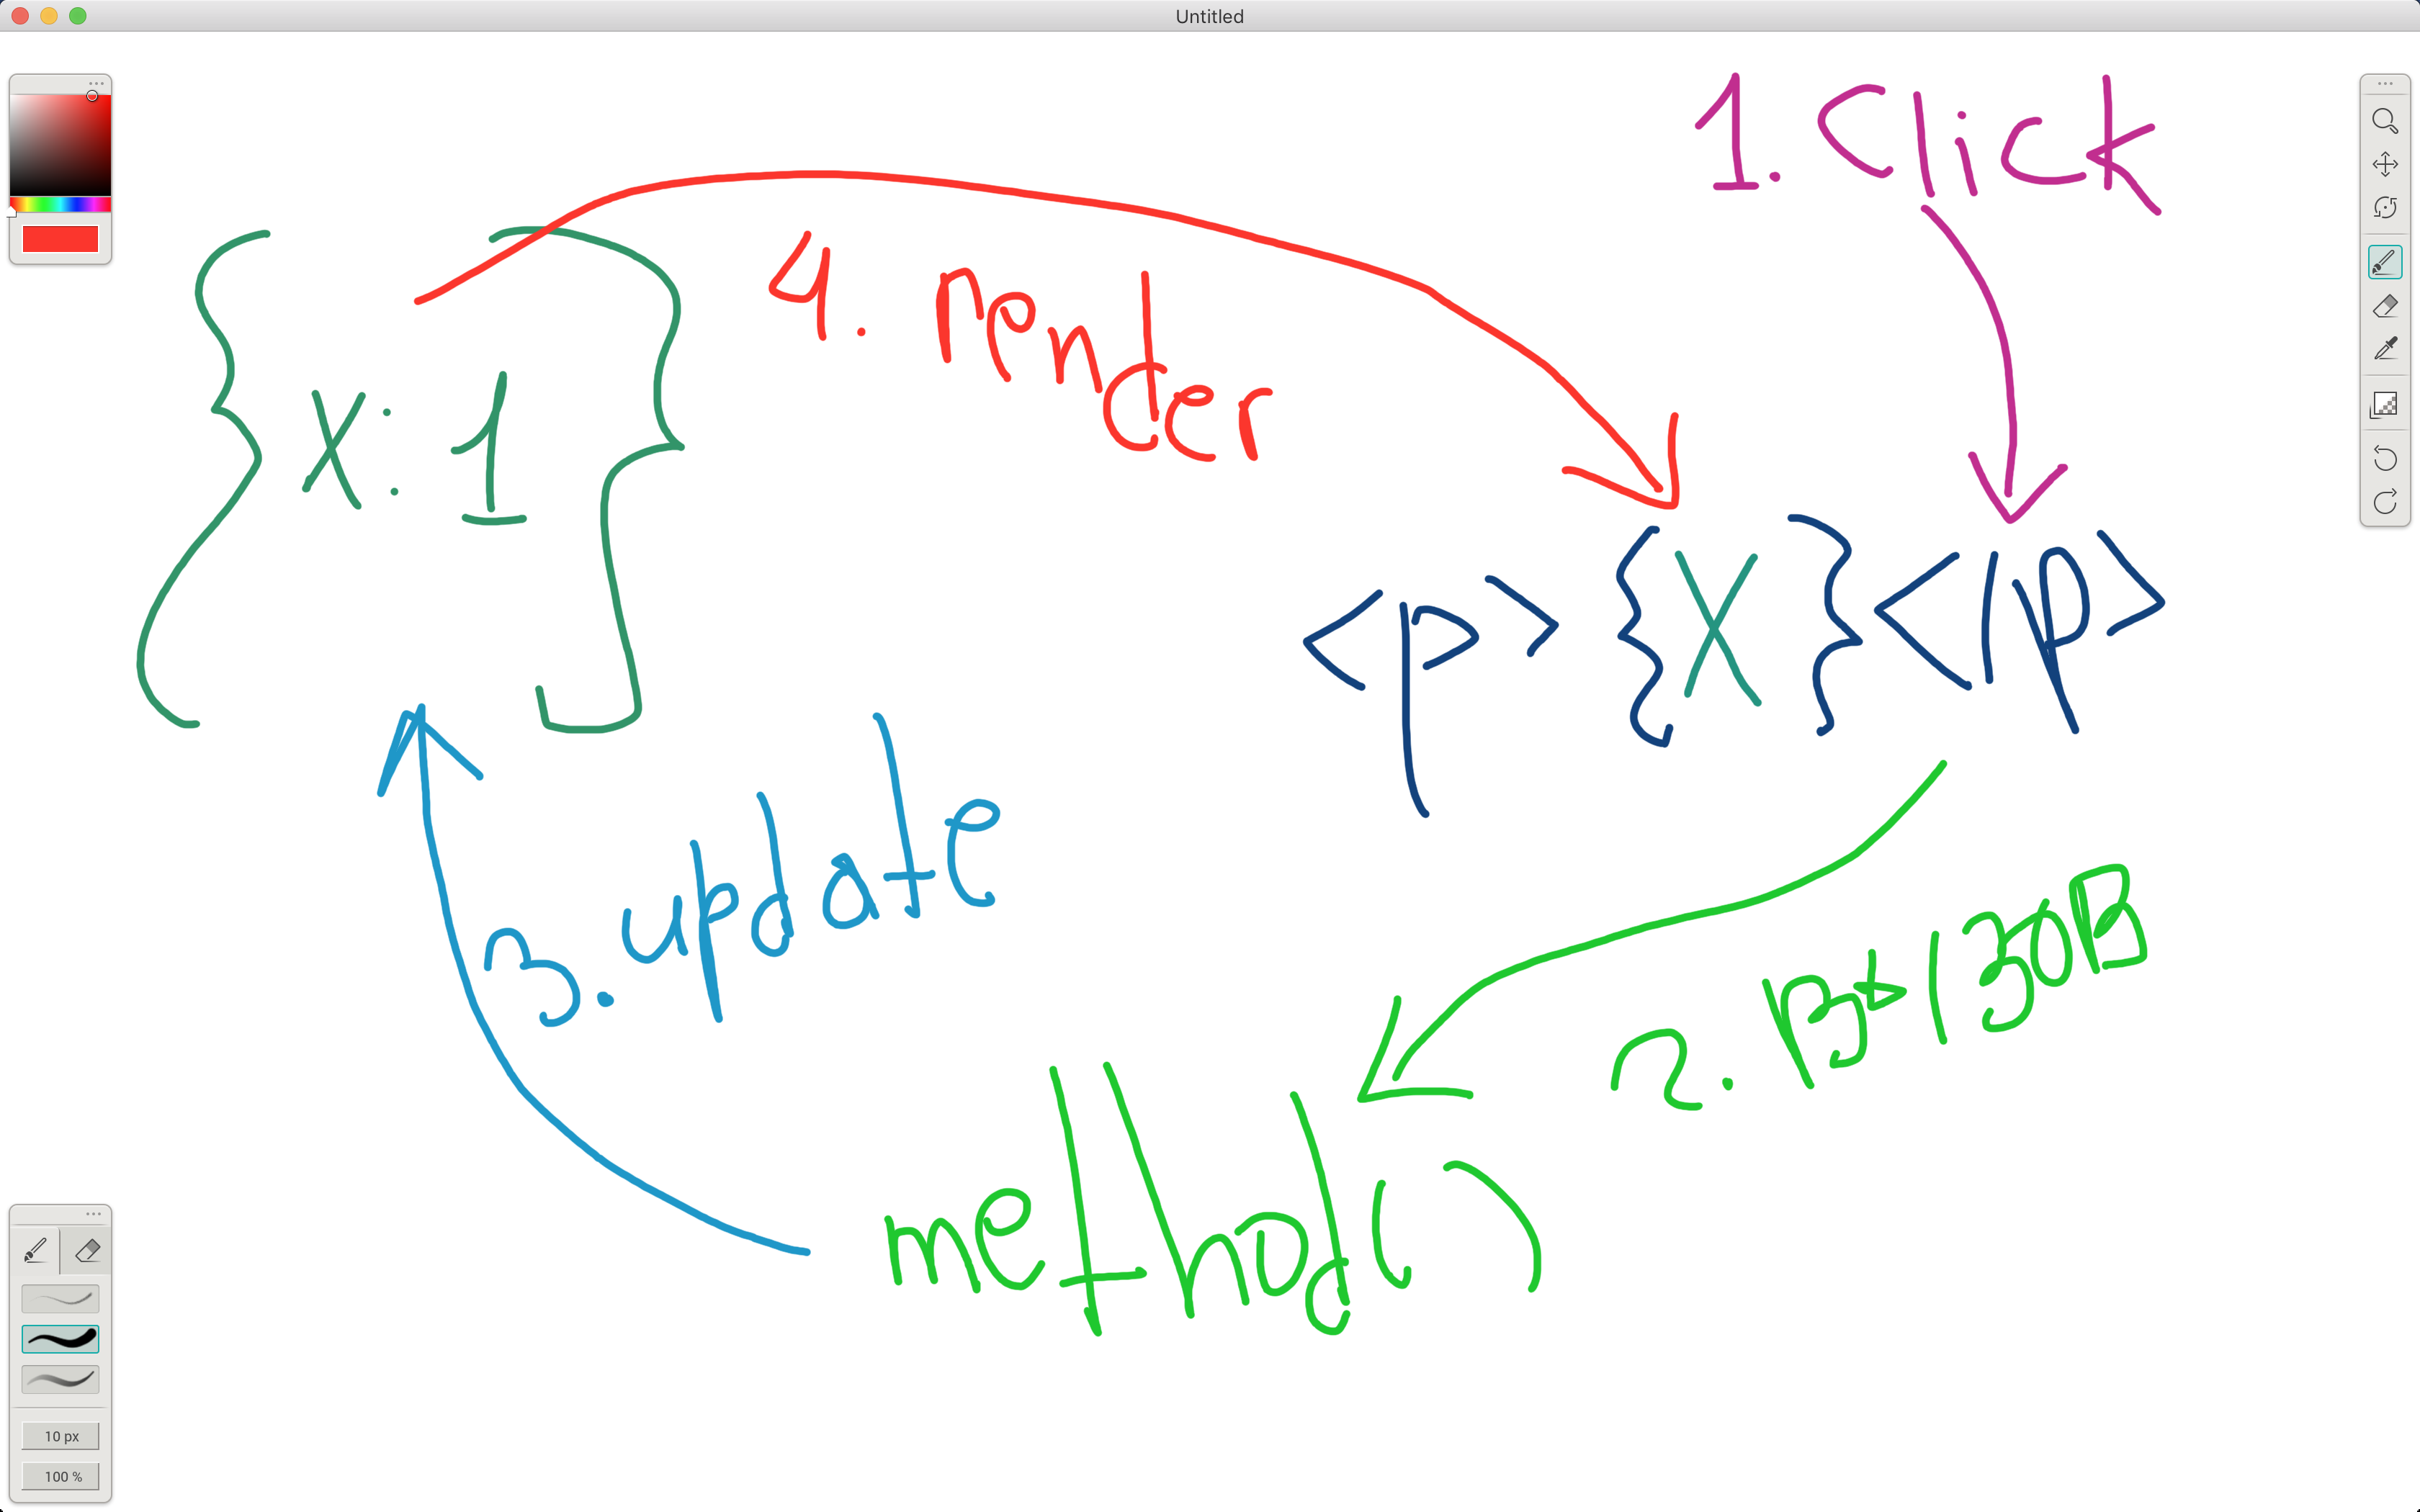 Untitled
1. Click
4. render
{ x: 1 }
<p>{x}</p>
3. update
2. ВЫЗОВ
method()
10 px
100 %